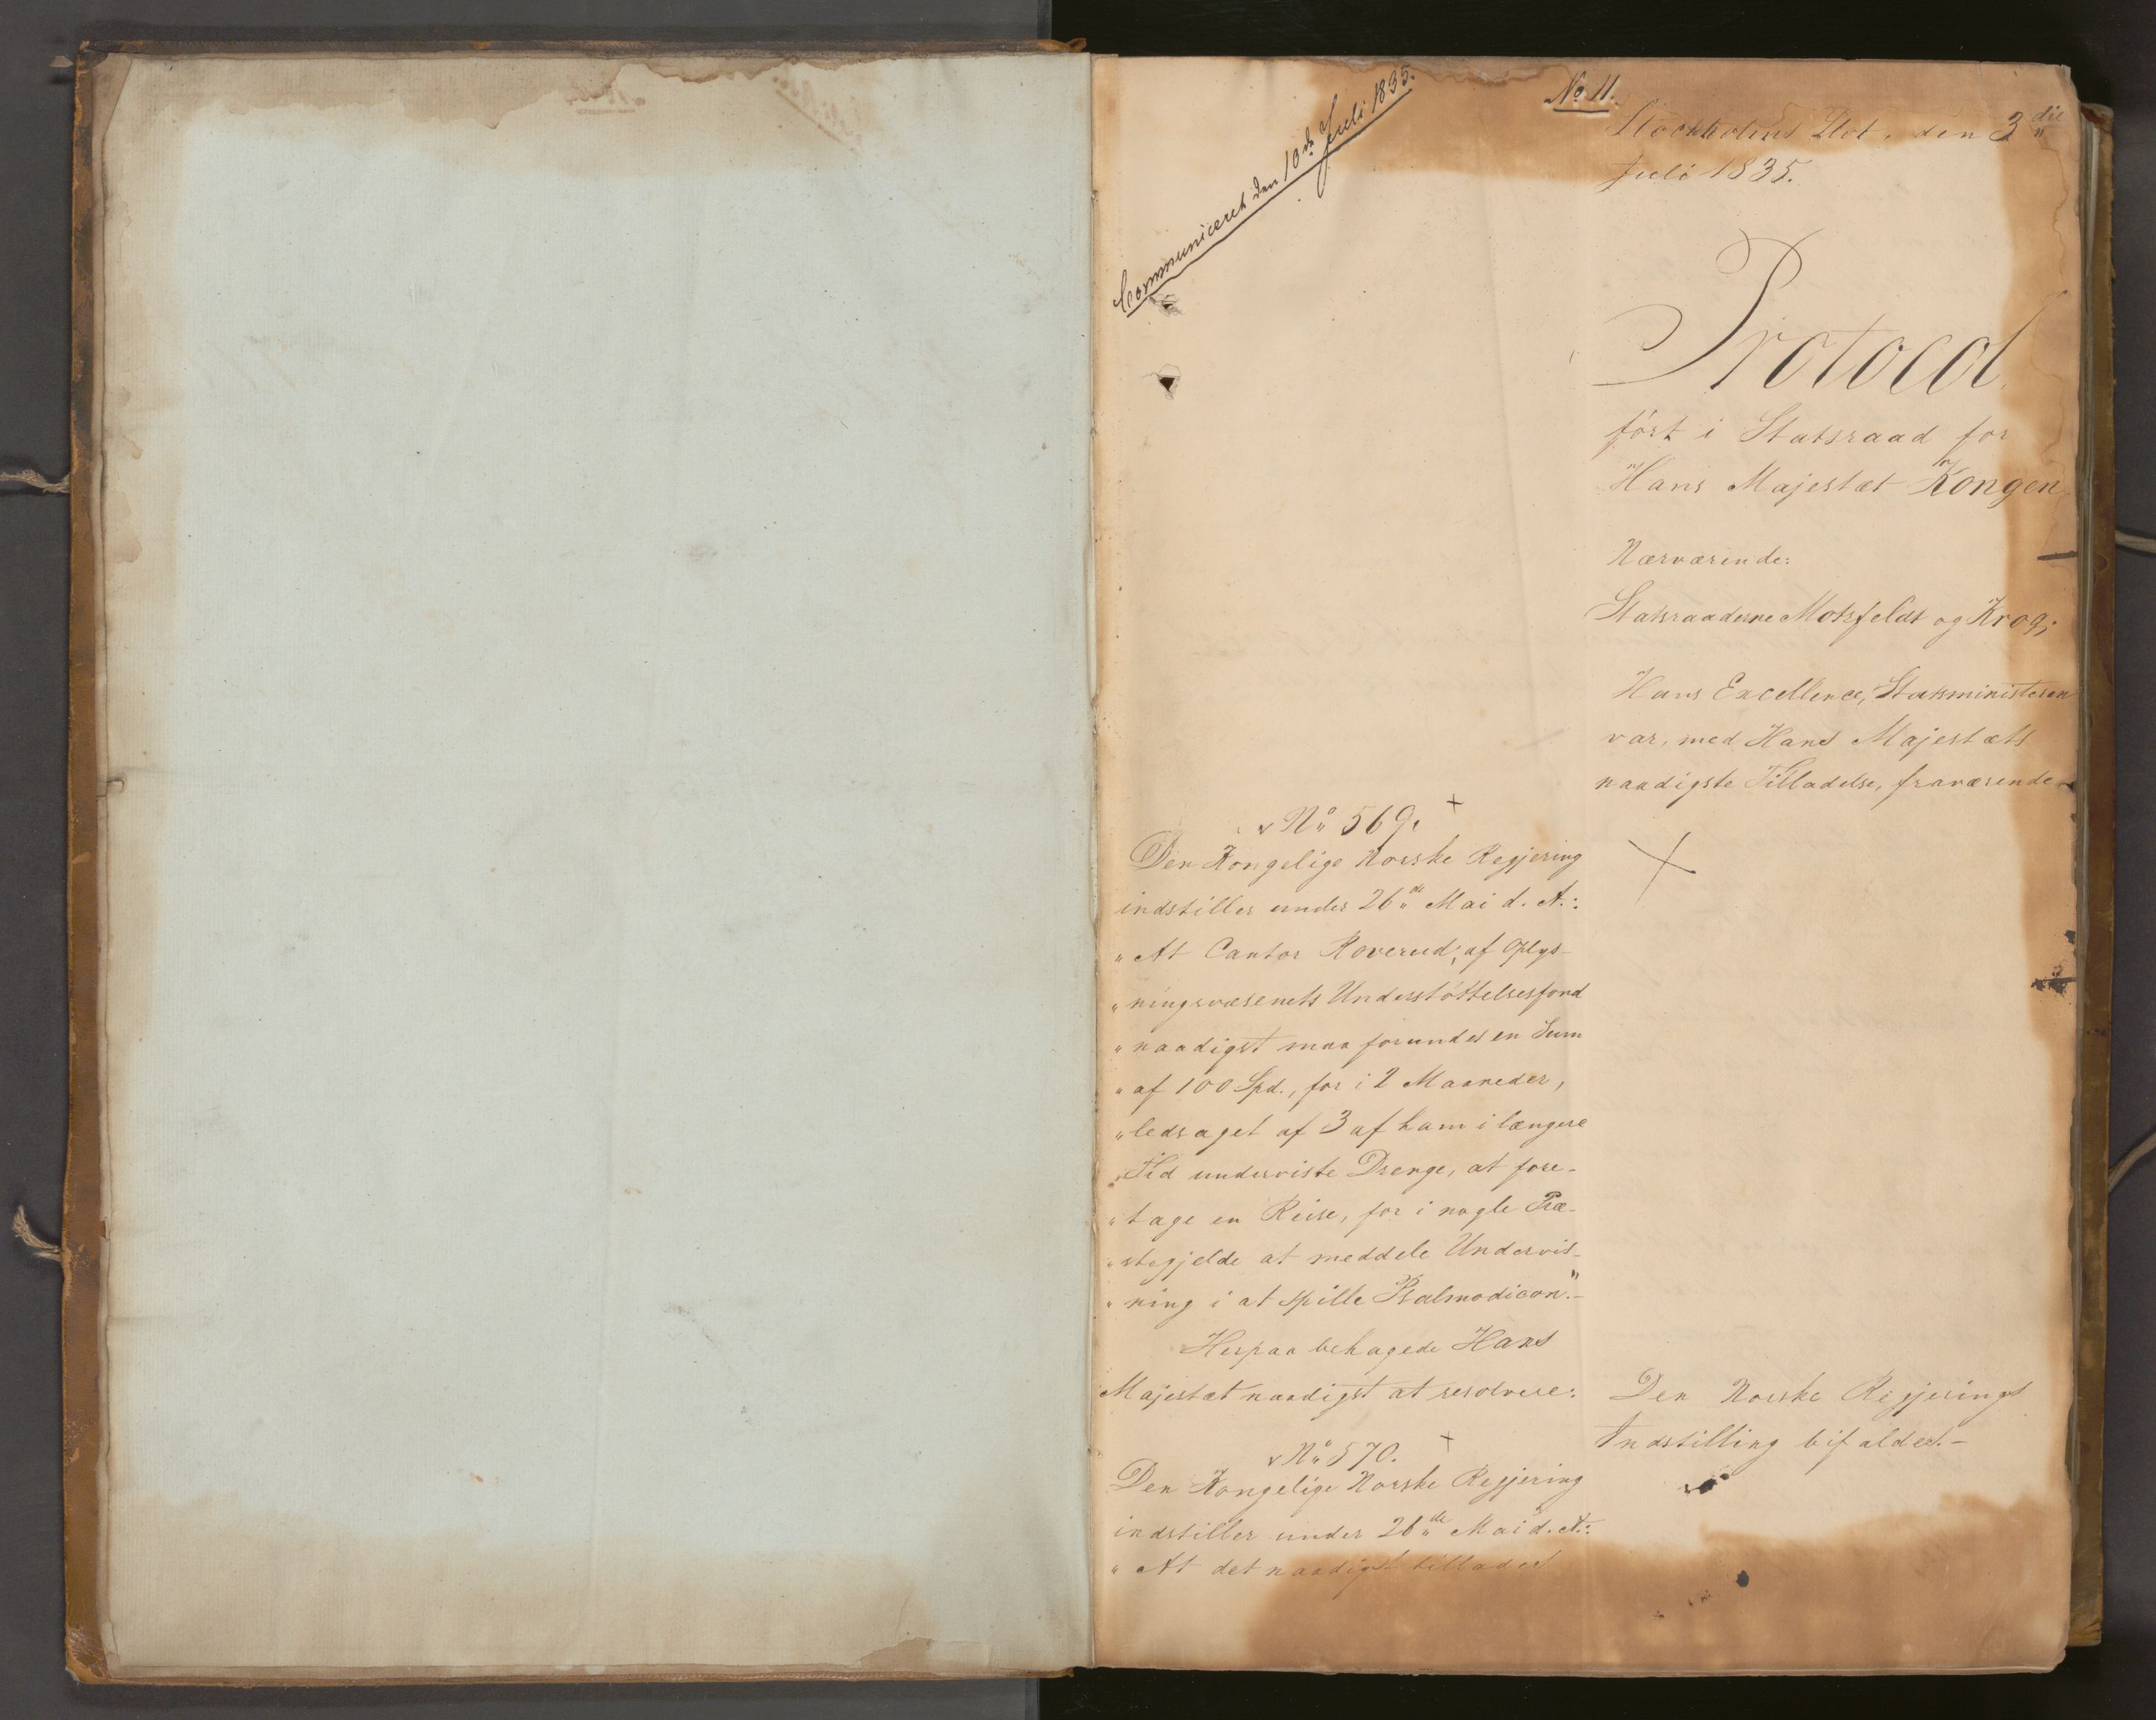 Communiceret den 10de Juli 1835.
No 11.
Stockholms Slot, den 3die
Juli 1835.
Protocol
ført i Statsraad for
Hans Majestæt Kongen
Nærværende:
Statsraaderne Motzfeldt og Krog;
Hans Excellence, Statsministeren
var, med Hans Majestæts
naadigste Tilladelse, fraværende.
No 569.
Den Kongelige Norske Regjering
indstiller under 26de Mai d. A.:
"At Cantor Roverud, af Oplys-
"ningsvæsenets Understøttelsesfond
"naadigst maa forundes en Sum
"af 100 Spd., for i 2 Maaneder,
"ledsaget af 3 af ham i længere
"Tid underviste Drenge, at fore-
"tage en Reise, for i nogle Præ-
"stegjelde at meddele Undervis-
"ning i at spille Psalmodicon."-
Herpaa behagede Hans
Majestæt naadigst at resolvere:
Den Norske Regjerings
Indstilling bifaldes.-
No 570.
Den Kongelige Norske Regjering
indstiller under 26de Mai d. A.:
"At det naadigst tillades